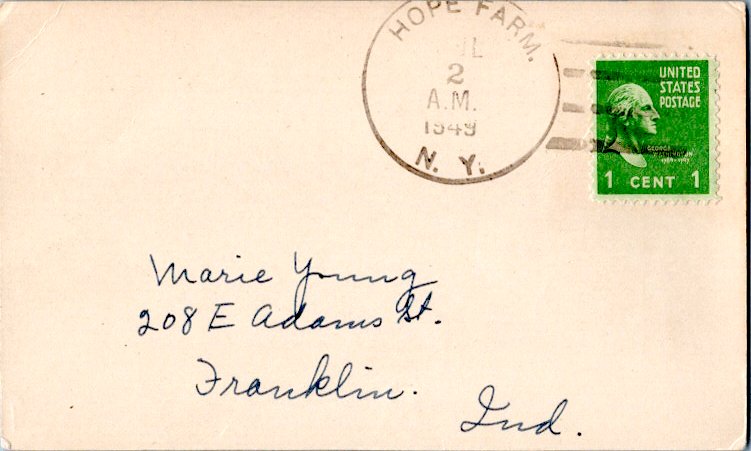 HOPE FARM.
2
A.M.
1949
N. Y.
UNITED
STATES
POSTAGE
GEORGE
WASHINGTON
1 CENT 1
Marie Young
208 E Adams St.
Franklin.
Ind.